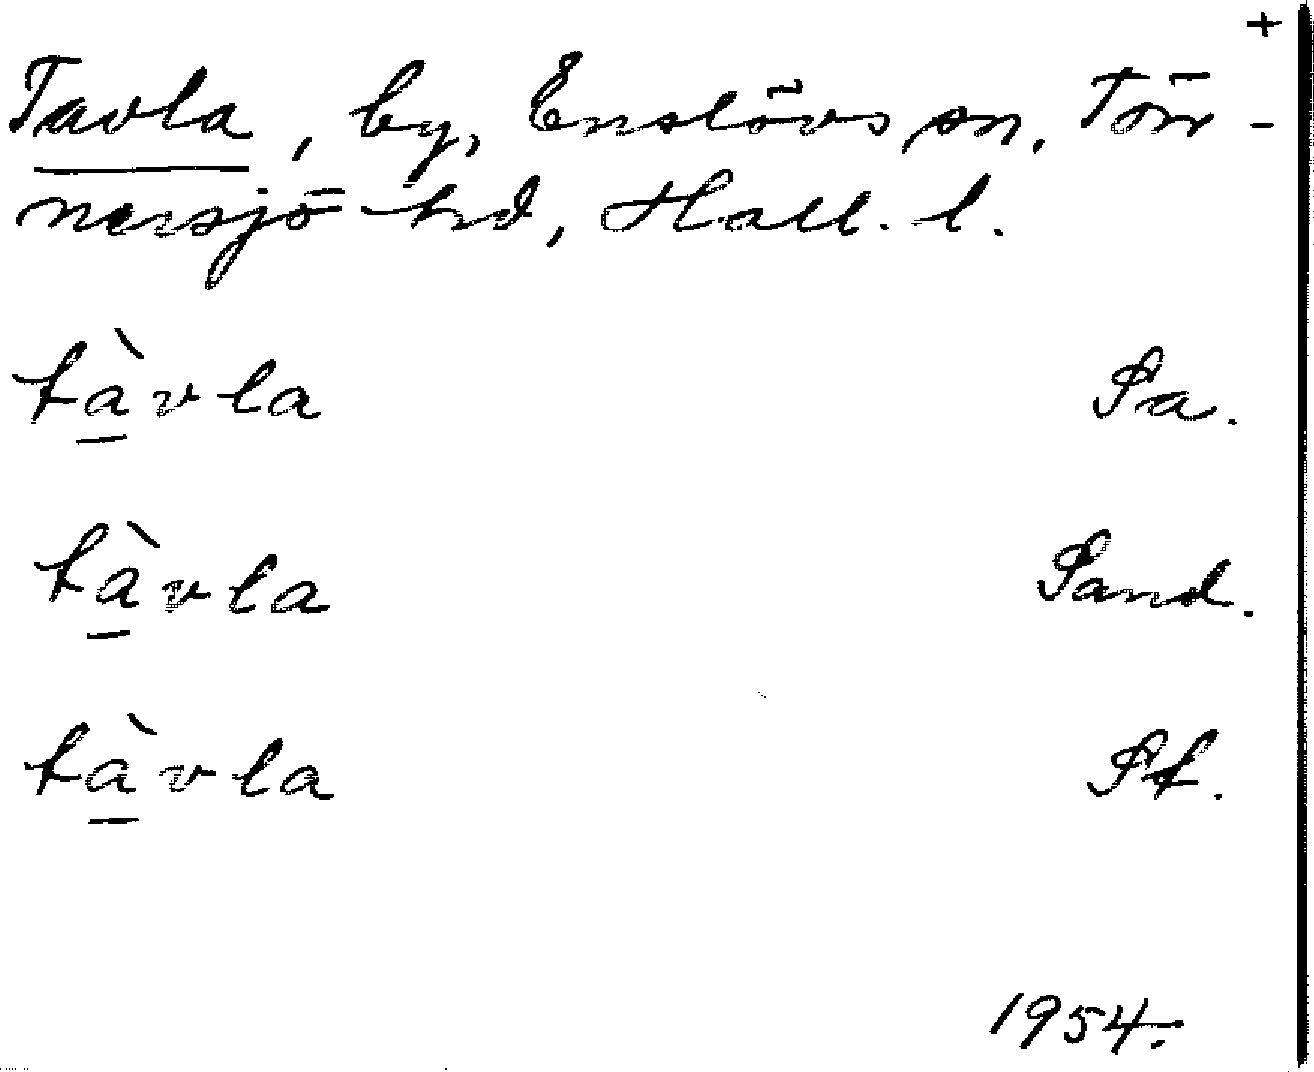 +
Tavla, by, Enslövs sn. Tön-
nersjö hd, Hall. l.
tàvla Sa.
tàvla Sand.
tàvla St.
1954.